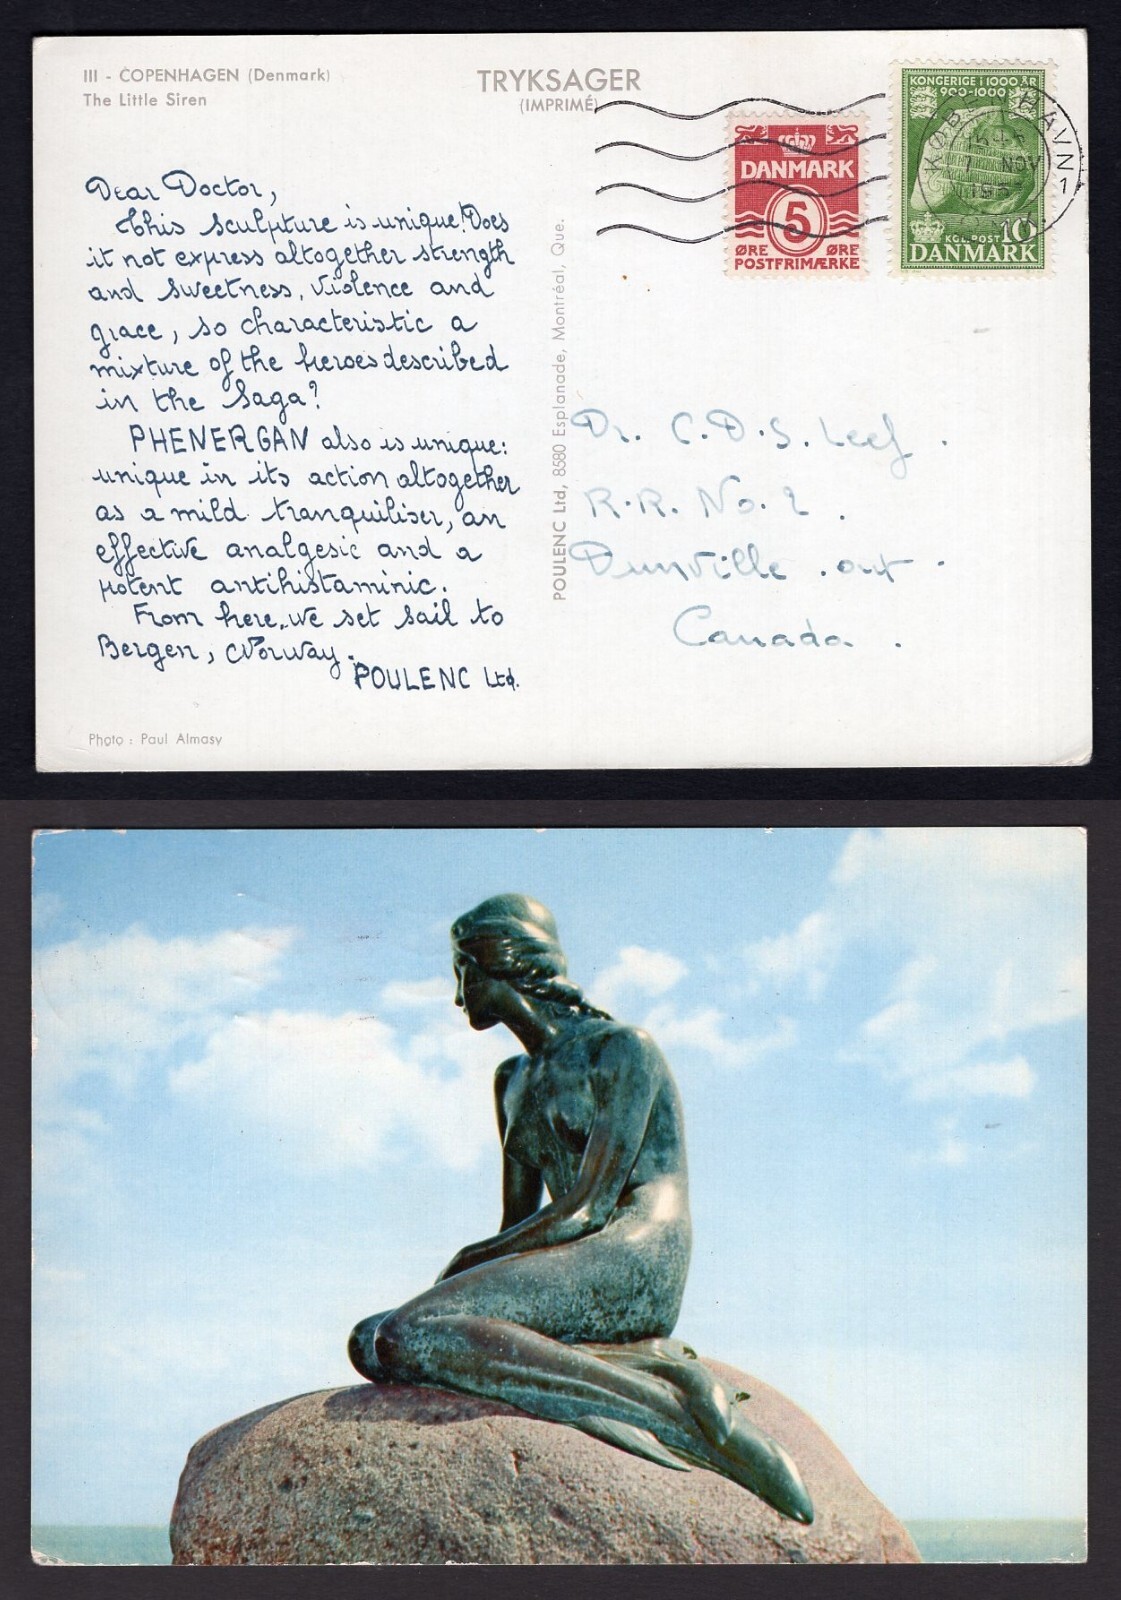 III - COPENHAGEN (Denmark)
The Little Siren
TRYKSAGER
(IMPRIMÉ)
Dear Doctor,
This sculpture is unique! Does
it not express altogether strength
and sweetness, violence and
grace, so characteristic a
mixture of the heroes described
in the Saga?
PHENERGAN also is unique:
unique in its action altogether
as a mild tranquiliser, an
effective analgesic and a
potent antihistaminic.
From here, we set sail to
Bergen, Norway.
POULENC Ltd.
Photo : Paul Almasy
POULENC Ltd, 8580 Esplanade, Montréal, Que.
DANMARK
5
ØRE ØRE
POSTFRIMÆRKE
KONGERIGE I 1000 ÅR
900-1000
KGL. POST 10
DANMARK
KØBENHAVN
1
NOV
Dr. C.D.S. Leef.
R.R. No. 2.
Dunville. ont.
Canada.